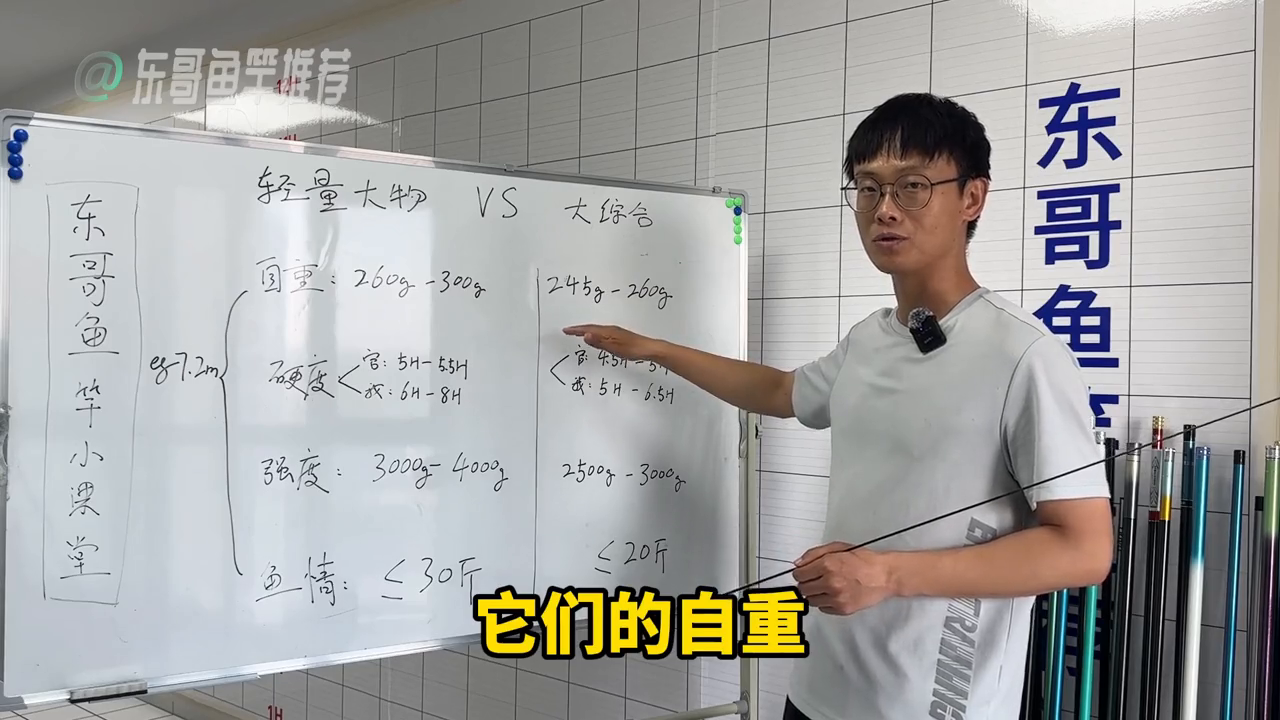 @东哥鱼竿推荐
东哥鱼竿小课堂
轻量大物 VS 大综合
eg-7.2m
自重: 260g-300g 245g-260g
硬度
官: 5H-5.5H 官: 4.5H-5H
我: 6H-8H 我: 5H-6.5H
强度: 3000g-4000g 2500g-3000g
鱼情: ≤30斤 ≤20斤
东哥鱼竿
它们的自重
TRAINING
1H